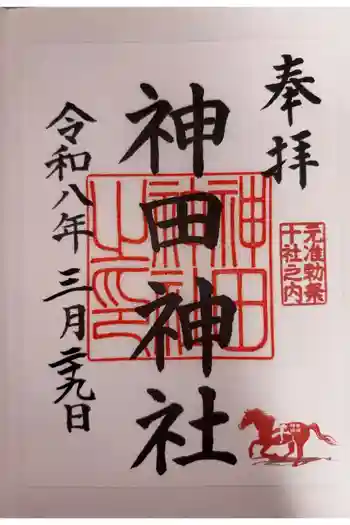 奉拝
元准勅祭
十社之内
神田神社
神田神社之印
令和八年三月二十九日